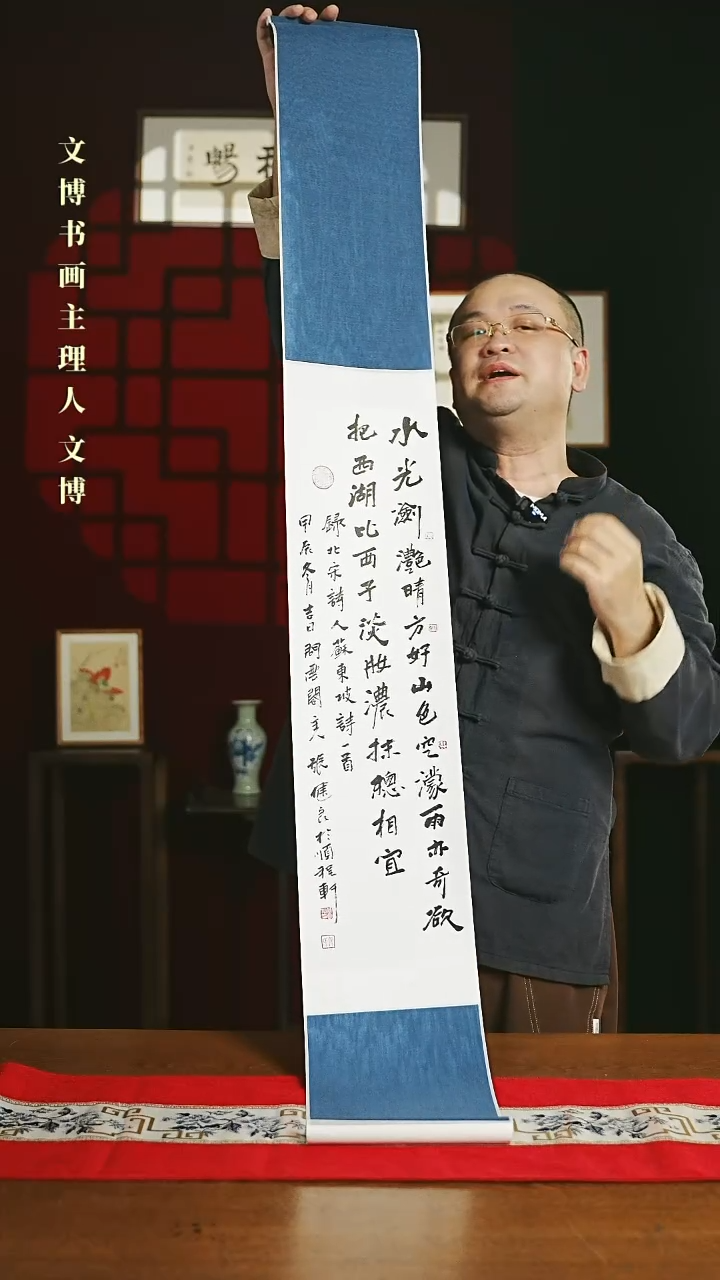 文博书画主理人 文博
暢
水光瀲灧晴方好山色空濛雨亦奇欲
把西湖比西子淡妝濃抹總相宜
錄北宋詩人蘇東坡詩一首
甲辰冬月吉日雲閣主人張健良於順程軒